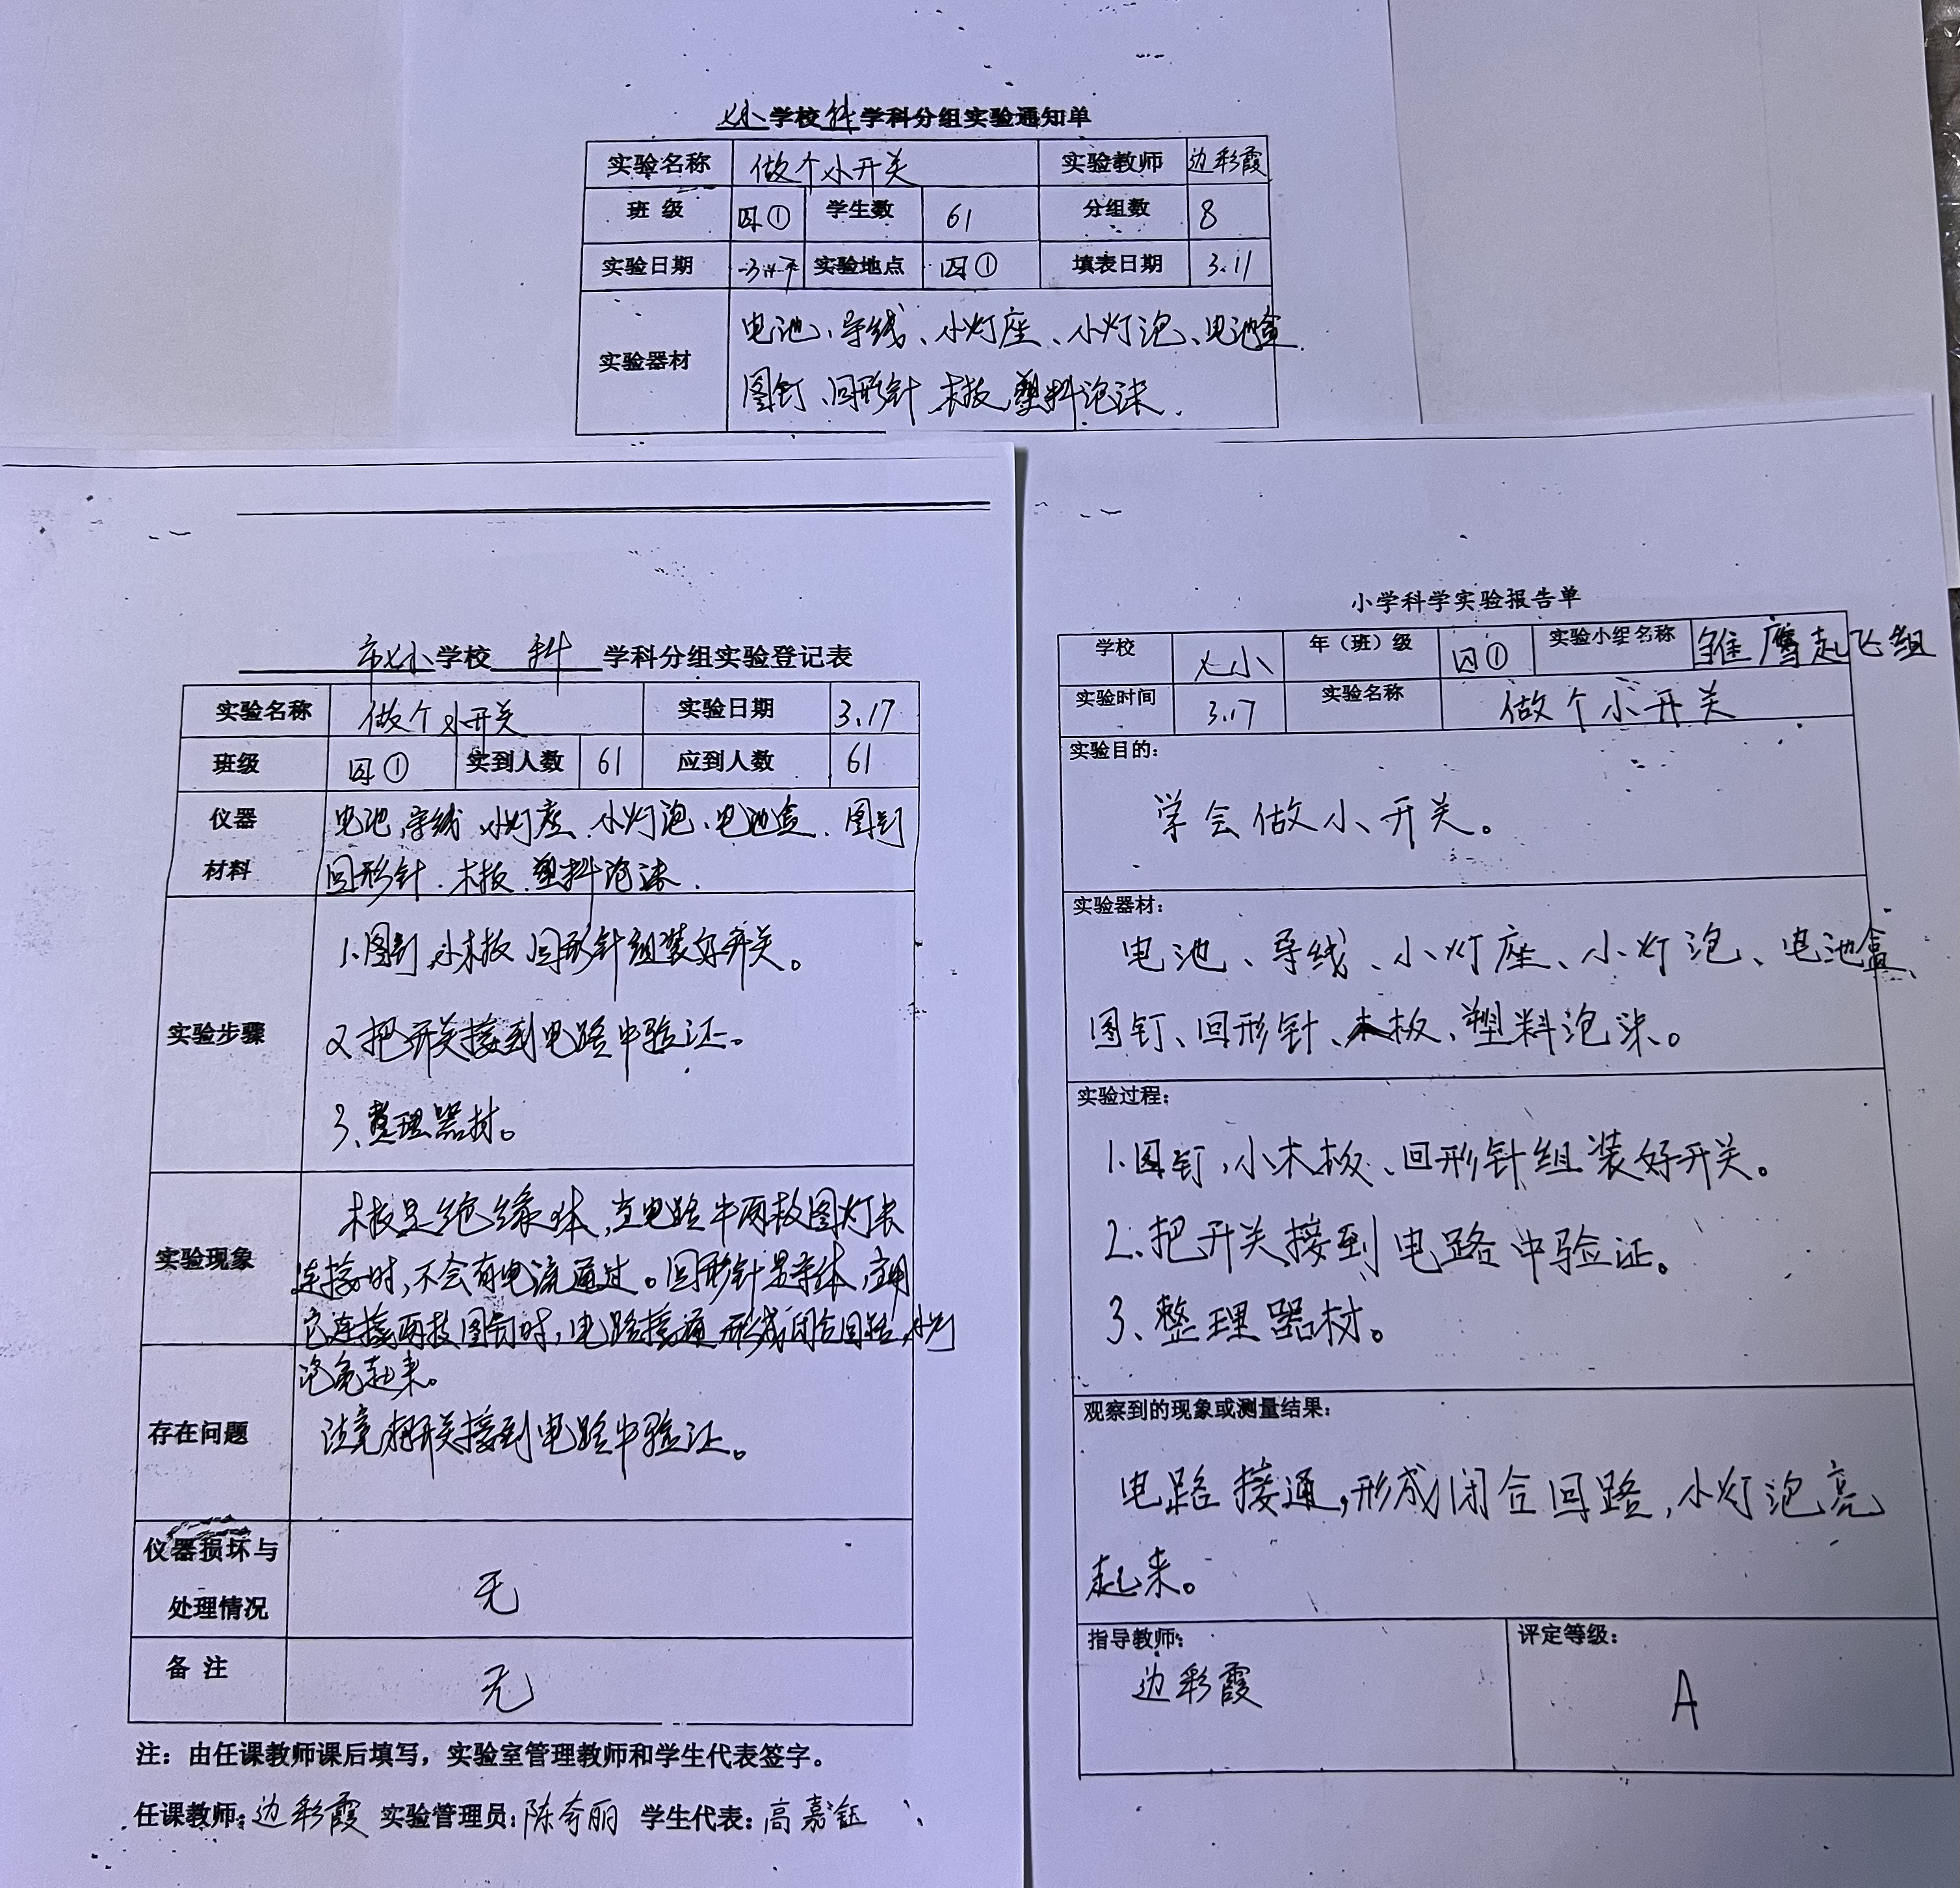 七小学校科学科分组实验通知单
实验名称 做个小开关 实验教师 边彩霞
班 级 四① 学生数 61 分组数 8
实验日期 实验地点 四① 填表日期 3.11
电池、导线、小灯座、小灯泡、电池盒
实验器材
图钉、回形针 木板 塑料泡沫.
市七小学校 科 学科分组实验登记表
实验名称 做个小开关 实验日期 3.17
班级 四① 实到人数 61 应到人数 61
仪器 电池 导线 小灯座、小灯泡、电池盒、图钉
材料 回形针. 木板 塑料泡沫.
1.图钉 小木板 回形针组装好开关。
实验步骤 2 把开关接到电路中验证。
3、整理器材。
木板是绝缘体,当电路中两枚图灯未
实验现象 连接时,不会有电流通过。回形针是导体,当用
它连接两枚图钉时,电路接通 形成闭合回路,小灯
泡亮起来。
存在问题 注意把开关接到电路中验证。
仪器损坏与
处理情况 无
备 注 无
注：由任课教师课后填写，实验室管理教师和学生代表签字。
任课教师：边彩霞 实验管理员：陈奇丽 学生代表：高嘉钰
小学科学实验报告单
学校 七小 年（班）级 四① 实验小组名称 雏鹰起飞组
实验时间 3.17 实验名称 做个小开关
实验目的：
学会做小开关。
实验器材：
电池、导线、小灯座、小灯泡、电池盒、
图钉、回形针、木板、塑料泡沫。
实验过程：
1.图钉,小木板、回形针组装好开关。
2.把开关接到电路中验证。
3、整理器材。
观察到的现象或测量结果：
电路接通,形成闭合回路,小灯泡亮
起来。
指导教师： 评定等级：
边彩霞 A